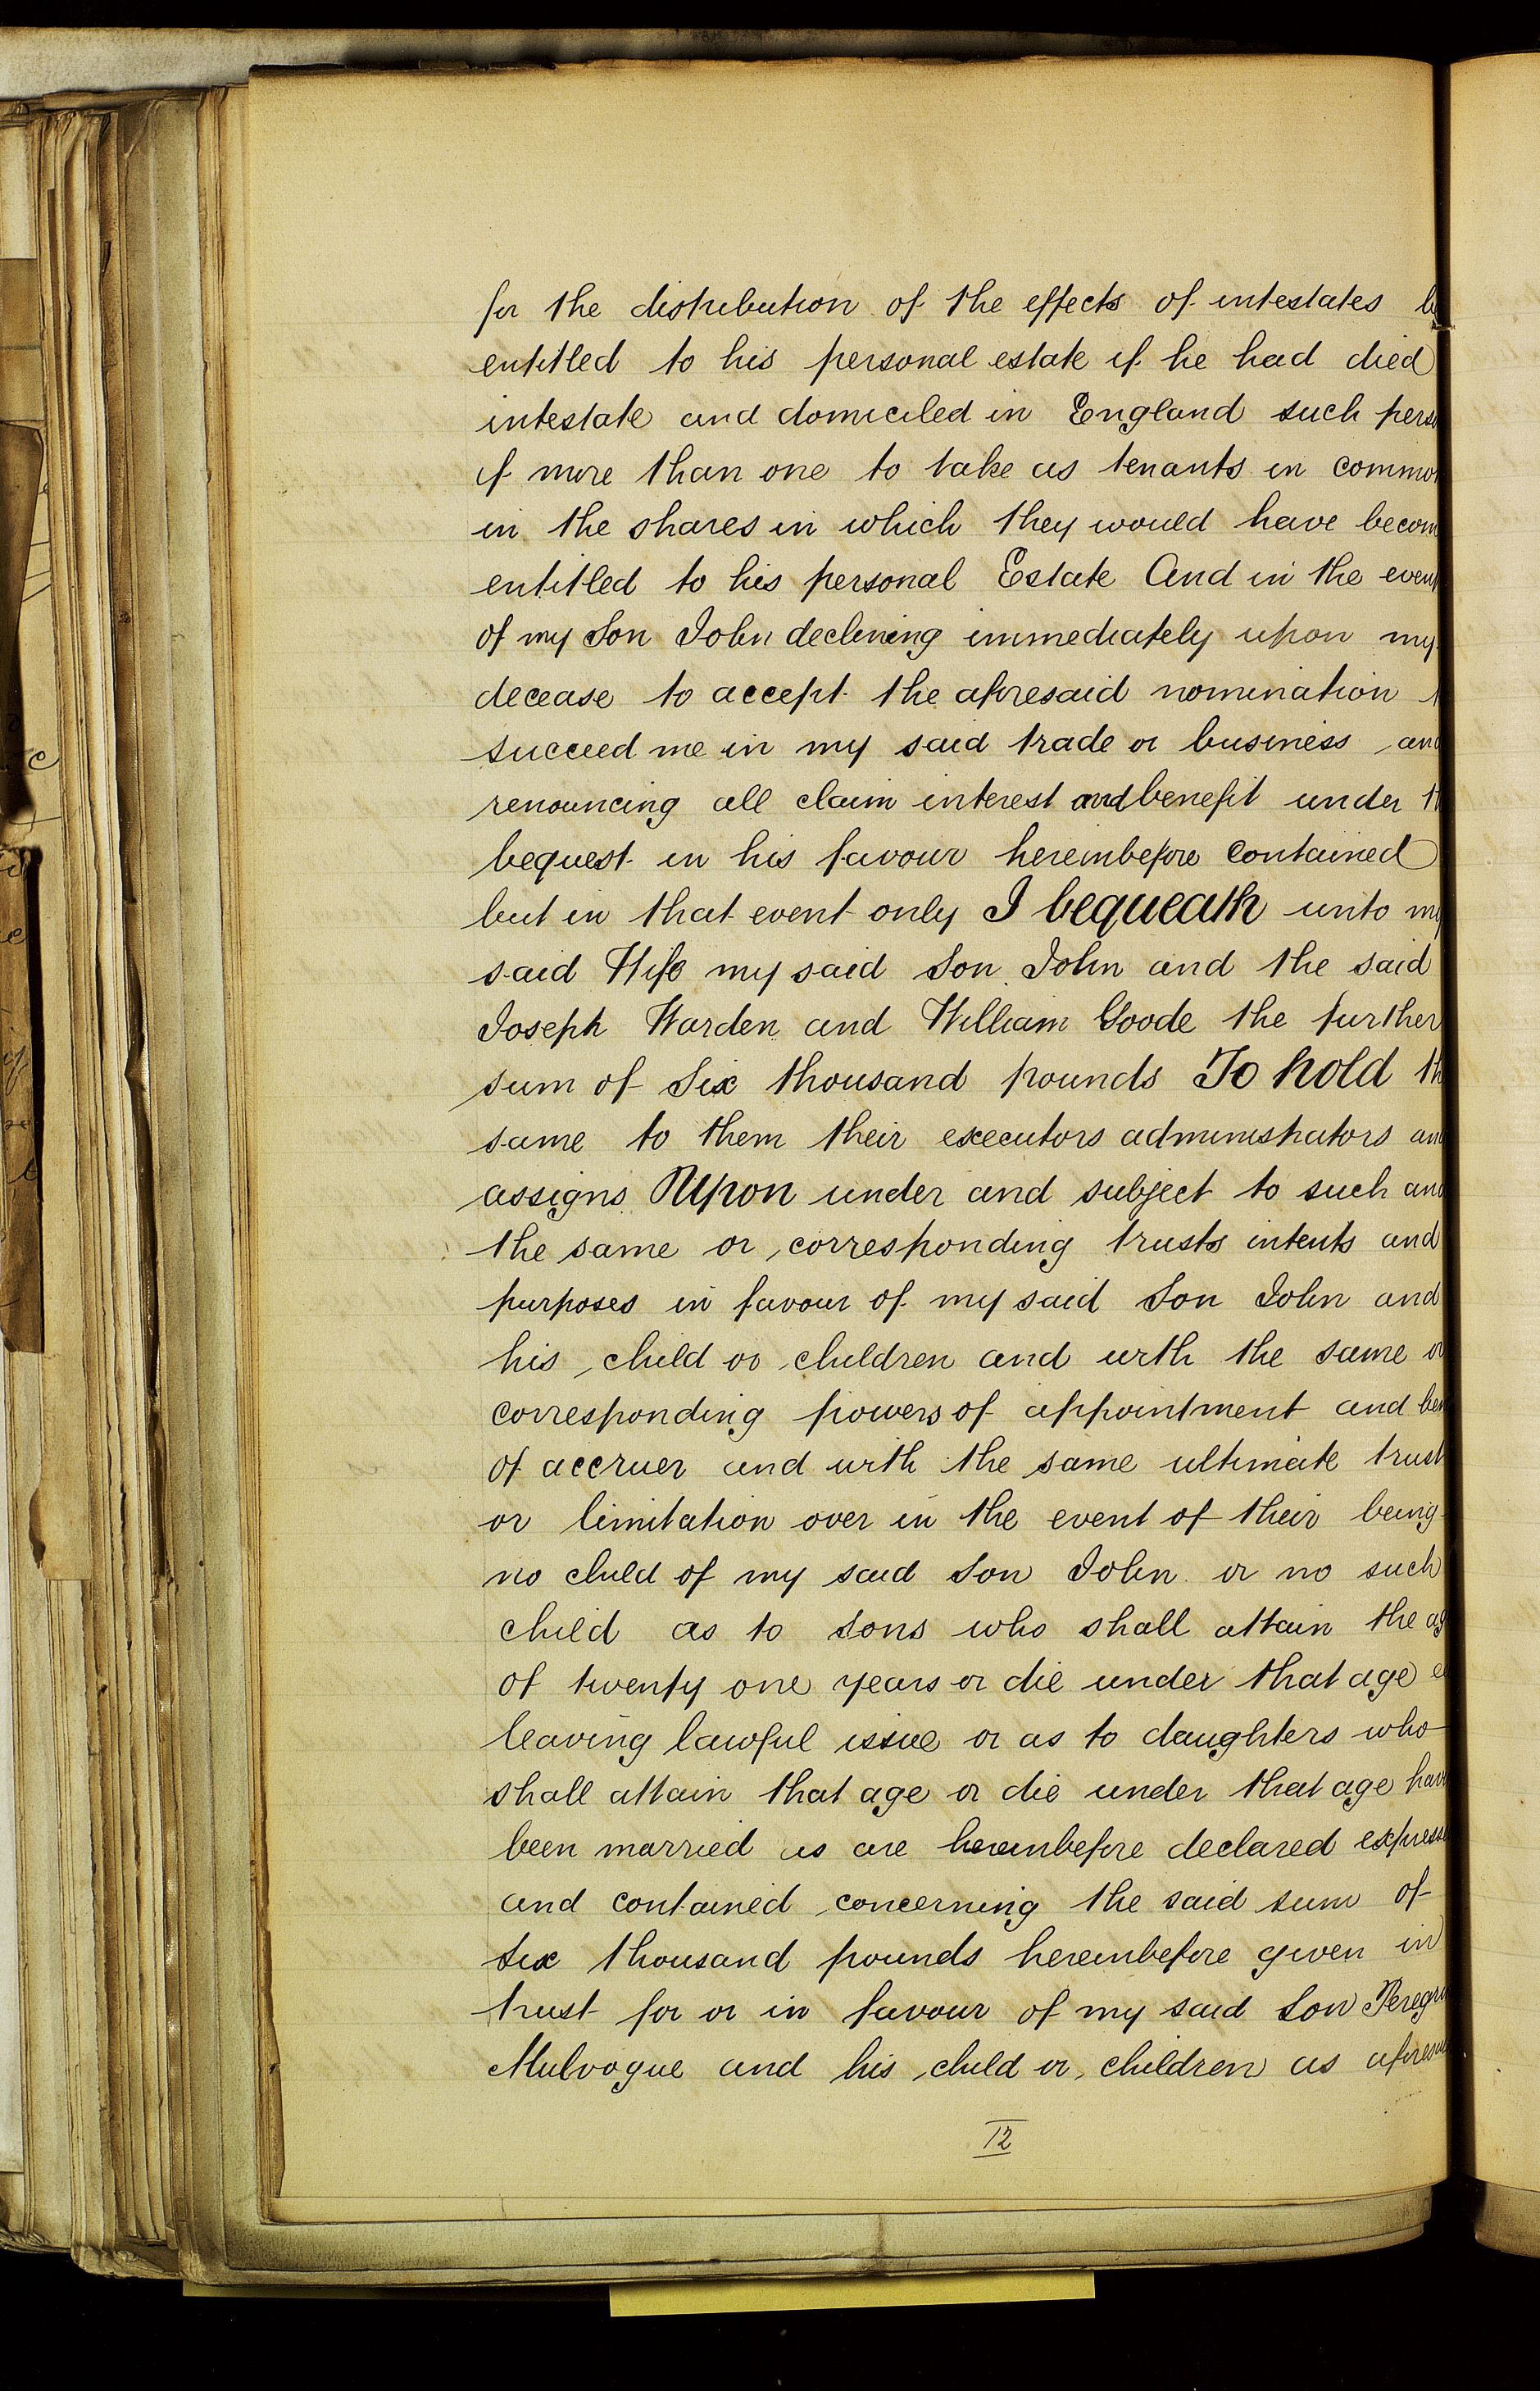 for the distribution of the effects of intestates
entitled to his personal estate if he had died
intestate and domiciled in England such perso
if more than one to take as tenants in common
in the shares in which they would have becom
entitled to his personal Estate And in the event
of my Son John declining immediately upon my
decease to accept the aforesaid nomination
succeed me in my said trade or business and
renouncing all claim interest and benefit under th
bequest in his favour hereinbefore contained
but in that event only I bequeath unto my
said Wife my said Son John and the said
Joseph Warden and William Goode the further
sum of Six thousand pounds To hold th
same to them their executors administrators and
assigns Upon under and subject to such and
the same or corresponding trusts intents and
purposes in favour of my said Son John and
his child or children and with the same or
corresponding powers of appointment and ben
of accruer and with the same ultimate trust
or limitation over in the event of their being
no child of my said Son John or no such
child as to sons who shall attain the ag
of twenty one years or die under that age
leaving lawful issue or as to daughters who
shall attain that age or die under that age hav
been married as are hereinbefore declared express
and contained concerning the said sum of
six thousand pounds hereinbefore given in
trust for or in favour of my said Son Peregri
Mulvogue and his child or children as aforesai
12